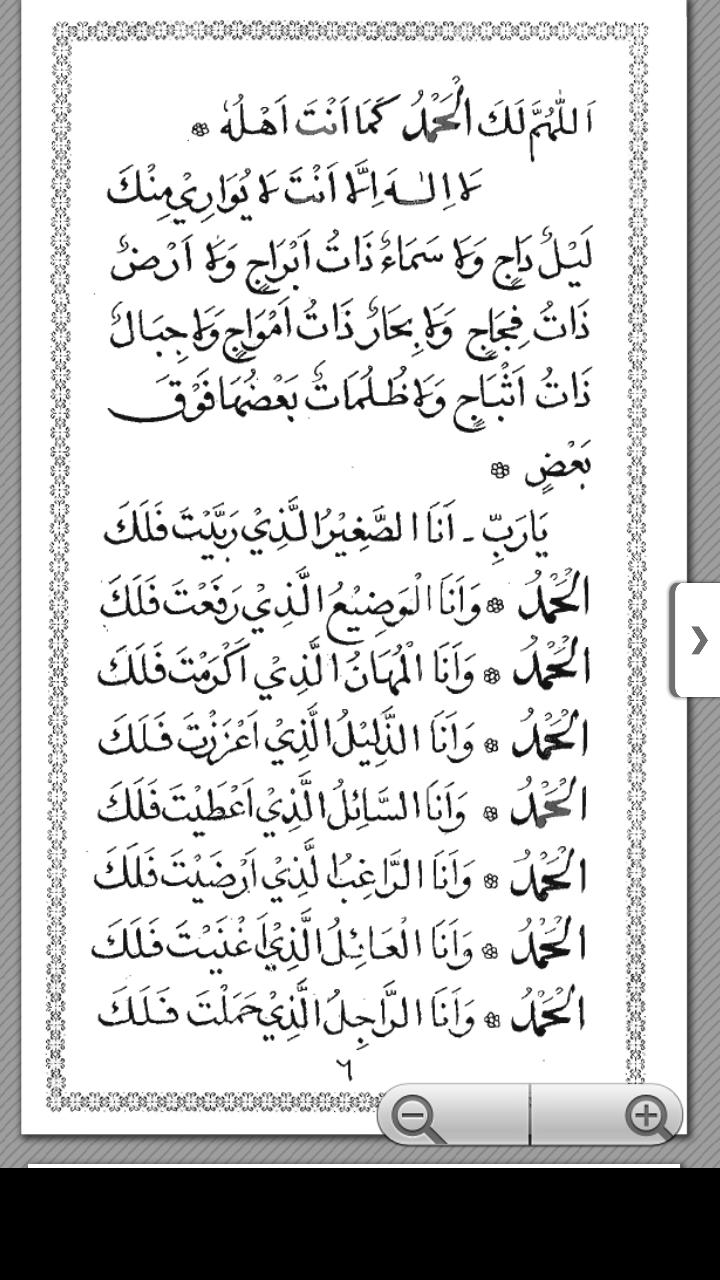 اَللّٰهُمَّ لَكَ الْحَمْدُ كَمَا اَنْتَ اَهْلُهٗ ❁
لَا اِلٰـهَ اِلَّا اَنْتَ لَا يُوَارِيْ مِنْكَ
لَيْلٌ دَاجٍ وَلَا سَمَاءٌ ذَاتُ اَبْرَاجٍ وَلَا اَرْضٌ
ذَاتُ فِجَاجٍ وَلَا بِحَارٌ ذَاتُ اَمْوَاجٍ وَلَا جِبَالٌ
ذَاتُ اَثْبَاجٍ وَلَا ظُلُمَاتٌ بَعْضُهَا فَوْقَ
بَعْضٍ ❁
يَارَبِّ ـ اَنَا الصَّغِيْرُ الَّذِيْ رَبَّيْتَ فَلَكَ
الْحَمْدُ ❁ وَاَنَا الْوَضِيْعُ الَّذِيْ رَفَعْتَ فَلَكَ
الْحَمْدُ ❁ وَاَنَا الْمُهَانُ الَّذِيْ اَكْرَمْتَ فَلَكَ
الْحَمْدُ ❁ وَاَنَا الذَّلِيْلُ الَّذِيْ اَعْزَزْتَ فَلَكَ
الْحَمْدُ ❁ وَاَنَا السَّائِلُ الَّذِيْ اَعْطَيْتَ فَلَكَ
الْحَمْدُ ❁ وَاَنَا الرَّاغِبُ الَّذِيْ اَرْضَيْتَ فَلَكَ
الْحَمْدُ ❁ وَاَنَا الْعَائِلُ الَّذِيْ اَغْنَيْتَ فَلَكَ
الْحَمْدُ ❁ وَاَنَا الرَّاجِلُ الَّذِيْ حَمَلْتَ فَلَكَ
٦